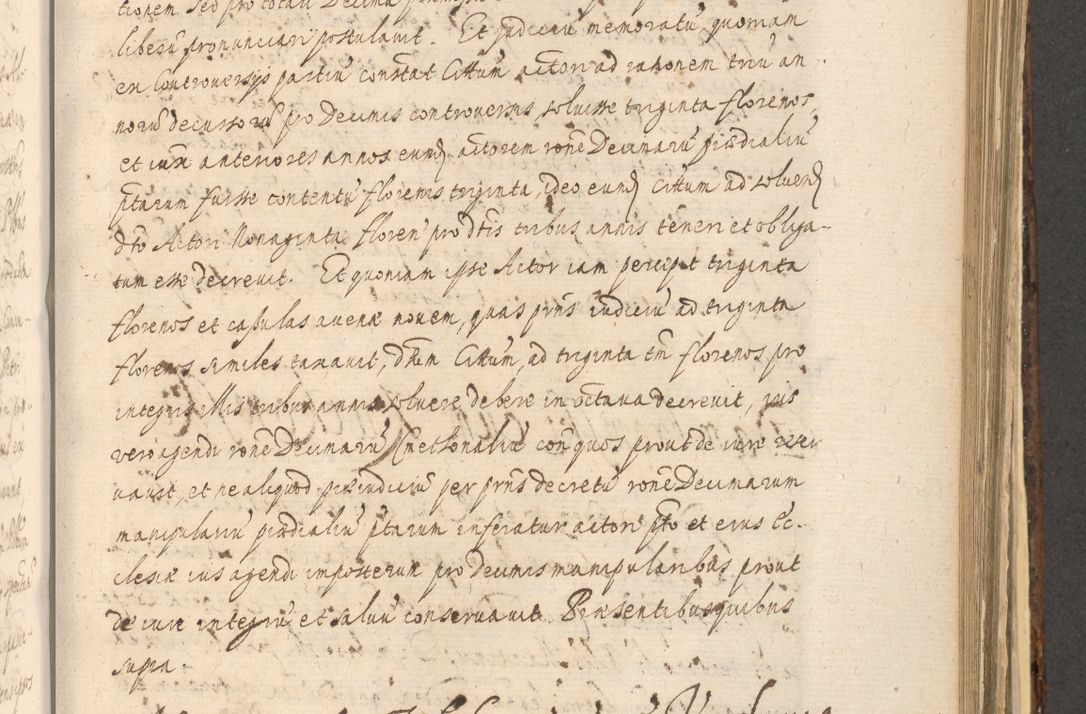 tionem sed pro totali Decima
liberũ pronunciari postulavit. Et iudiciũ memoratũ, quoniam
ex Controversijs partiũ constat Cittum actori ad rationem triũ an
norũ decursorũ pro Decimis controversis, soluisse triginta florenos,
et iuxa anteriores annos eund actorem rõne Decimarũ prædialiũ
ptarum fuisse contentũ florenis triginta, ideo eund Cittum ad solvend
dto Actori Nonaginta floren pro dtis tribus annis teneri et obliga-
tum esse decrevit. Et quoniam ipse Actor iam percepit triginta
florenos et capulas avenæ novem, quas prñs iudiciũ ad triginta
florenos similes taxavit, Cittum, ad triginta tñ florenos pro
integris illis tribus annis solvere debere in octava decrevit, ius
vero agendi rõne Decimarũ Cmethonaliũ con quos prout de iure reser
vavit, et ne aliquod præiudiciũ per prñs decretũ rõne Decimarum
manipulariũ prædialiũ ptarum inferatur actori pto et eius Ec-
clesiæ ius agendi imposterum pro decimis manipularibus prout
de iure integrũ et salvũ conservavit. Præsentibus quibus
supra.